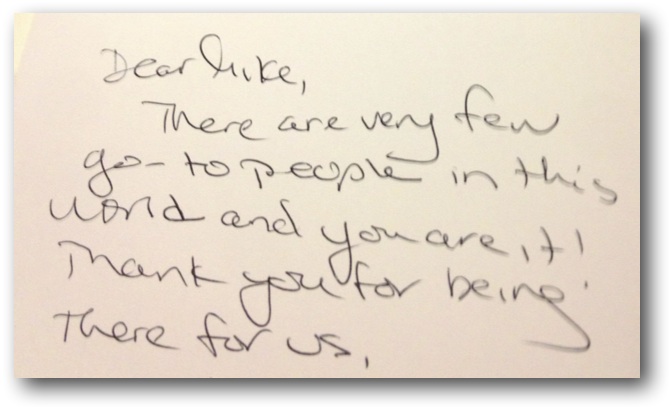 Dear Mike,
There are very few
go-to people in this
world and you are it!
Thank you for being
There for us.